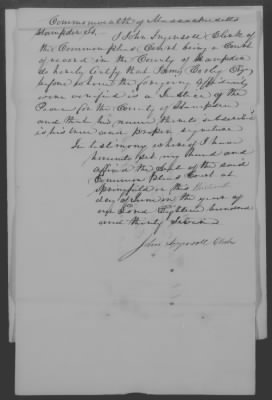 Commonwealth of Massachusetts
Hampden Ss.
I John Ingersoll Clerk of
the Common pleas Court being a Court
of record in the County of Hampden
do hereby Certify that
before whom the foregoing Affidavits
were is a Justice of the
Peace for the County of Hampden
and that his name thereto subscribed
is his true and proper signature
In testimony whereof I have
hereunto set my hand and
affixed the Seal of the said
Common Pleas Court at
Springfield on this
day of June in the year of
our Lord Eighteen hundred
and thirty
John Ingersoll Clerk